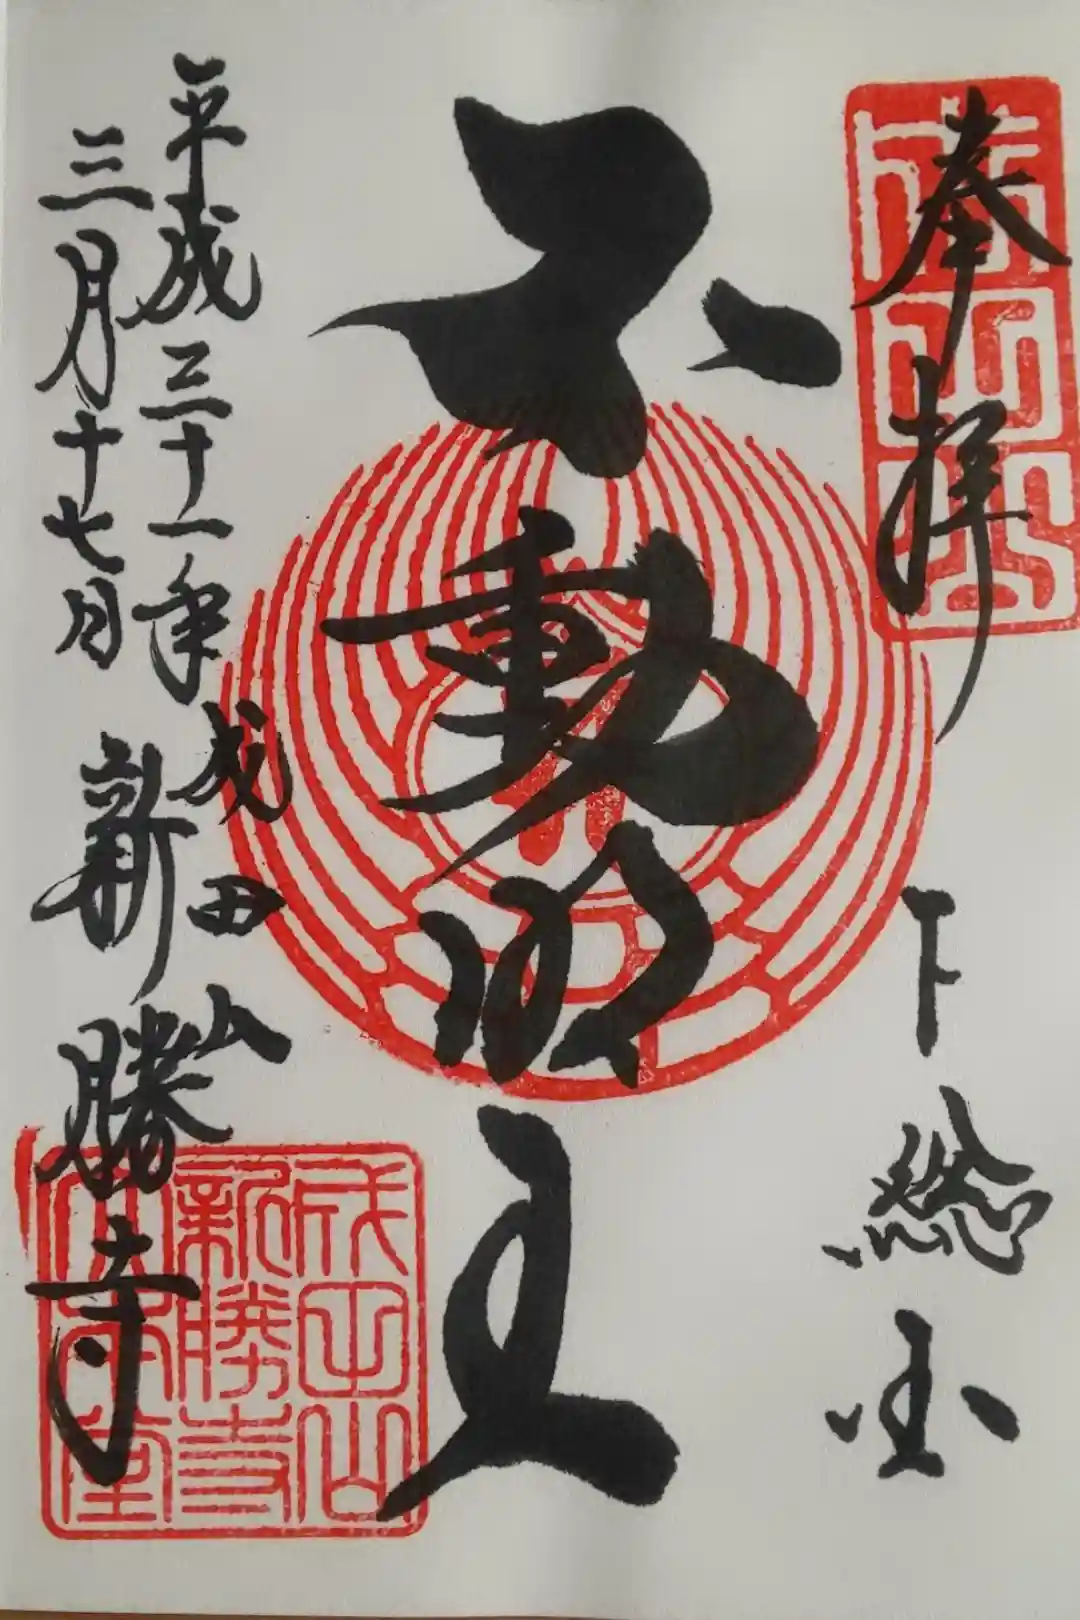 奉拝 下総国
不動明王
平成三十一年 成田山
三月十七日 新勝寺
成田山
新勝寺
大本堂